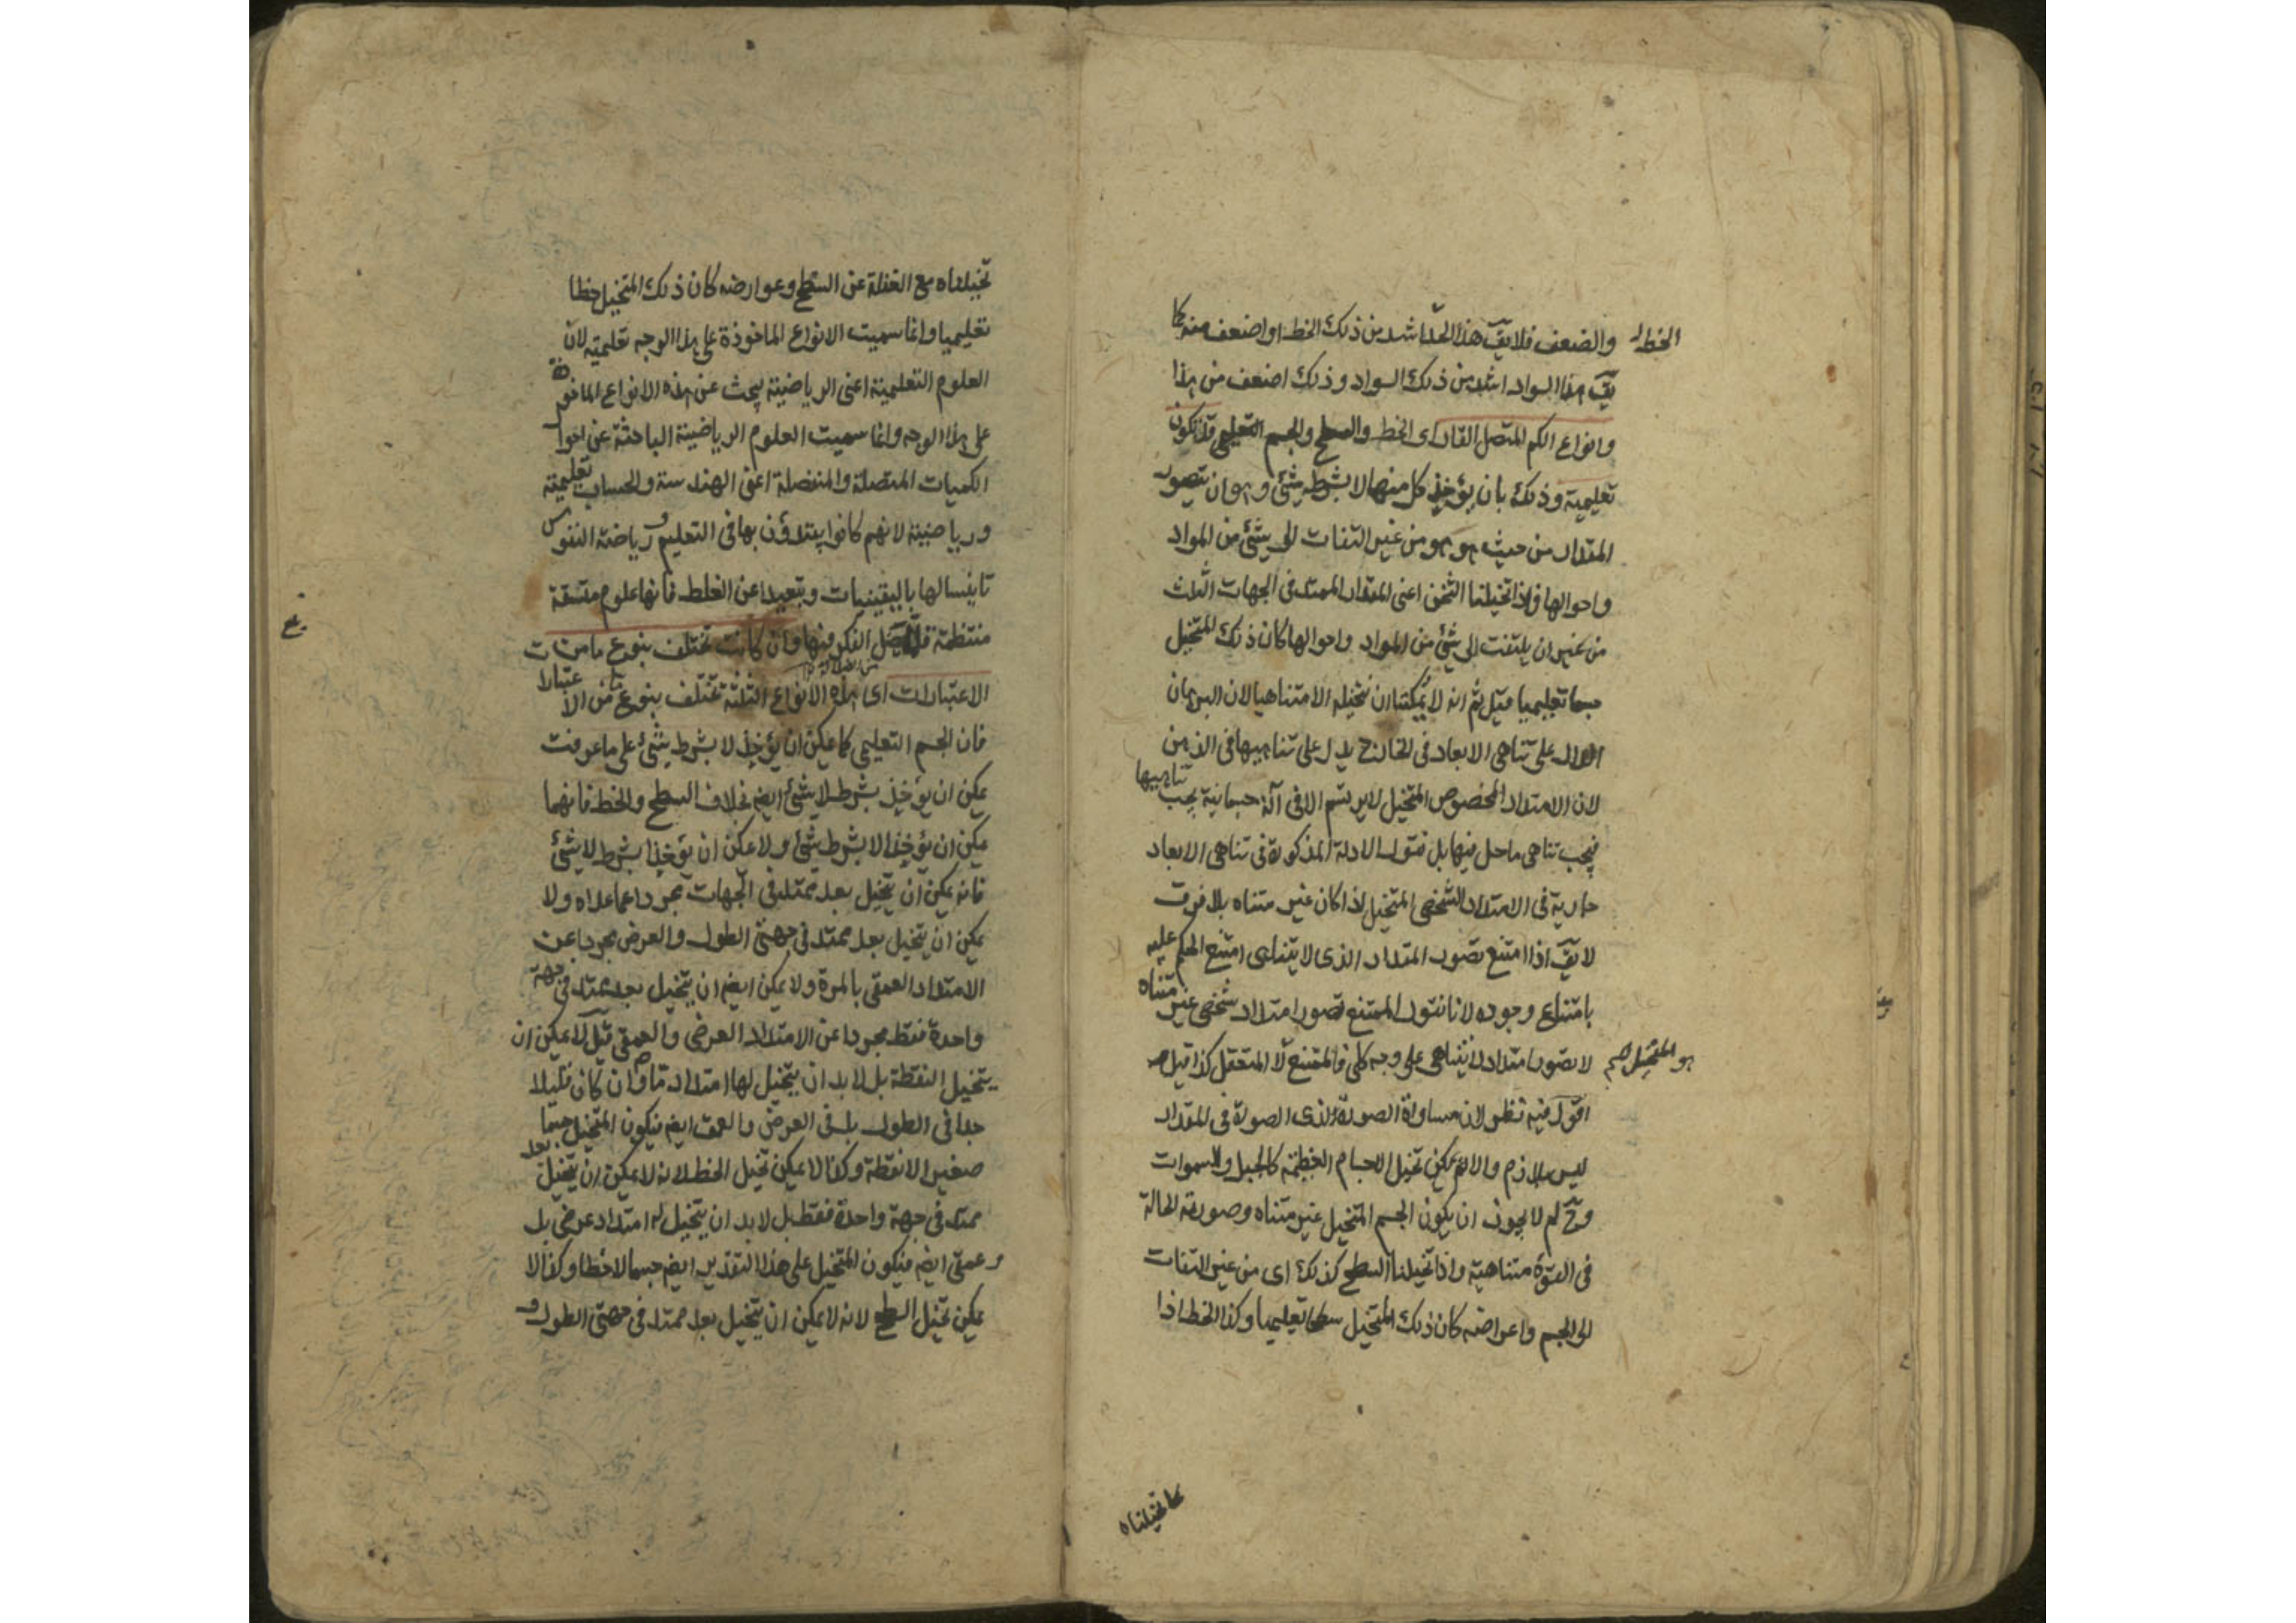 والضعف فلا يقّ هذا الخط اشد من ذلك الخط او اضعف منه كما
الخط
يقّ هذا السواد اشد من ذلك السواد وذلك اضعف من هذا
وانواع الكم المتصل القار اى الخط والسطح والجسم التعليمى قد تكون
تعليمية وذلك بان يؤخذ كل منها لا بشرط شئ وهو ان يتصور
المقدار من حيث هو هو من غير التفات الى شئ من المواد
واحوالها فاذا تخيلنا الثخن اعنى المقدار الممتد فى الجهات الثلث
من غير ان يلتفت الى شئ من المواد واحوالها كان ذلك المتخيل
جسما تعليميا قيل ثم انه لا يمكننا ان نتخيله الا متناهيا لان البرهان
الدال على تناهى الابعاد فى الخارج يدل على تناهيها فى الذهن
لان الامتداد المخصوص المتخيل لا يرتسم الا فى آلة جسمانية يجب تناهيها
فيجب تناهى ما حل فيها بل نقول الادلة المذكورة فى تناهى الابعاد
جارية فى الامتداد الشخصى المتخيل اذا كان غير متناه بلا فرق
لا يقّ اذا امتنع تصور المقدار الذى لا يتناهى امتنع الحكم عليه
بامتناع وجوده لانا نقول الممتنع تصور امتداد شخصى غير متناه
لا تصور امتداد لا يتناهى على وجه كلى فالممتنع لا المتعقل كذا قيل
هو المتخيل صح
اقول فيه نظر لان مساواة الصورة لذى الصورة فى المقدار
ليس بلازم والا لم يمكن تخيل الاجسام العظيمة كالجبل والسموات
وح لم لا يجوز ان يكون الجسم المتخيل غير متناه وصورته الحالة
فى القوة متناهية واذا تخيلنا السطح كذلك اى من غير التفات
الى الجسم واعراضه كان ذلك المتخيل سطحا تعليميا وكذا الخط اذا
تخيلناه
تخيلناه مع الغفلة عن السطح وعوارضه كان ذلك المتخيل خطا
تعليميا وانما سميت الانواع الماخوذة على هذا الوجه تعليمية لان
العلوم التعليمية اعنى الرياضية يبحث عن هذه الانواع الماخوذة
على هذا الوجه وانما سميت العلوم الرياضية الباحثة عن احوال
الكميات المتصلة والمنفصلة اعنى الهندسة والحساب تعليمية
ورياضية لانهم كانوا يبتدؤن بها فى التعليم ورياضة النفوس
تانيسا لها باليقينيات وتبعيدا عن الغلط فانها علوم متسقة
منتظمة الفكر فيها وان كانت تختلف بنوع ما من
الاعتبارات اى هذه الانواع الثلثة تختلف بنوع ما من الاعتبارات
فان الجسم التعليمى كما يمكن ان يؤخذ لا بشرط شئ على ما عرفت
يمكن ان يؤخذ بشرط لا شئ ايضا بخلاف السطح والخط فانهما
يمكن ان يؤخذا لا بشرط شئ ولا يمكن ان يؤخذا بشرط لا شئ
فانه يمكن ان يتخيل بعد ممتد فى الجهات مجردا عما عداه ولا
يمكن ان يتخيل بعد ممتد فى جهتى الطول والعرض مجردا عن
الامتداد العمقى بالمرة ولا يمكن ايضا ان يتخيل بعد ممتد فى جهة
واحدة فقط مجردا عن الامتداد العرضى والعمقى قيل لا يمكن ان
يتخيل النقطة بل لا بد ان يتخيل لها امتداد ما وان كان قليلا
جدا فى الطول بل فى العرض والعمق ايضا فيكون المتخيل جسما
صغيرا لا نقطة وكذا لا يمكن تخيل الخط لانه لا يمكن ان يتخيل بعد
ممتد فى جهة واحدة فقط بل لا بد ان يتخيل له امتداد عرضى بل
وعمقى ايضا فيكون المتخيل على هذا التقدير ايضا جسما لا خطا وكذا لا
يمكن تخيل السطح لانه لا يمكن ان يتخيل بعد ممتد فى جهتى الطول و